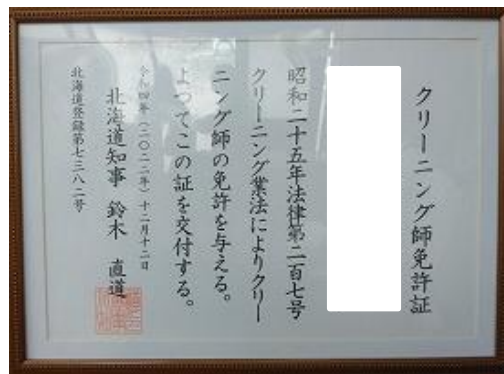 クリーニング師免許証
昭和二十五年法律第二百七号
クリーニング業法によりクリー
ニング師の免許を与える。
よつてこの証を交付する。
令和四年(二〇二二年)十二月十二日
北海道知事 鈴木 直道
北海道登録第七三八二号